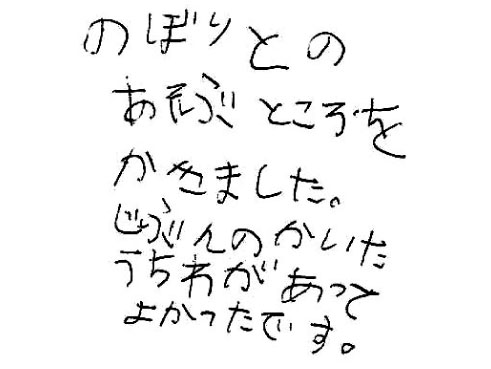 のぼりとの
あそぶところを
かきました。
じぶんのかいた
うちわがあって
よかったです。